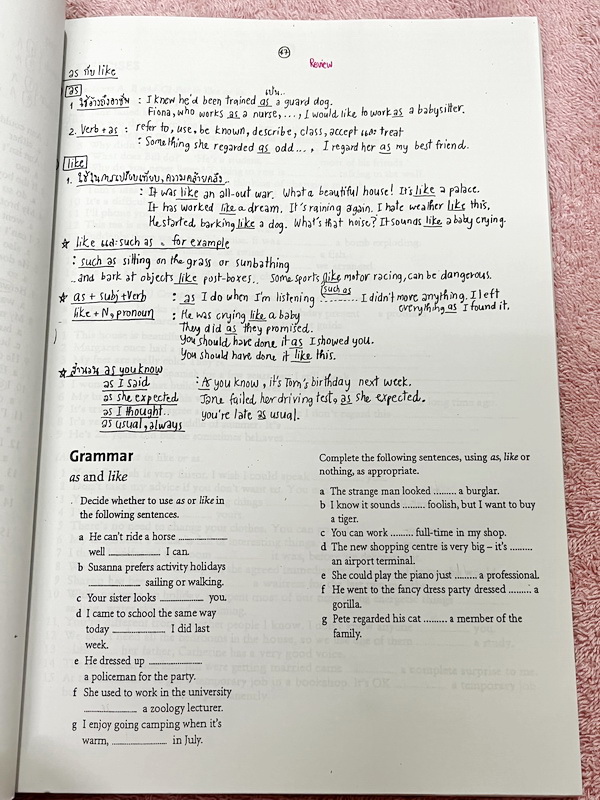 47
Review
as กับ like
as
เป็น..
1. ใช้อ้างถึงอาชีพ : I knew he'd been trained as a guard dog.
Fiona, who works as a nurse, ..., I would like to work as a babysitter.
2. Verb + as : refer to, use, be known, describe, class, accept และ treat
: Something she regarded as odd..., I regard her as my best friend.
like
1. ใช้ในการเปรียบเทียบ, ความคล้ายคลึง..
: It was like an all-out war. What a beautiful house! It's like a palace.
It has worked like a dream. It's raining again. I hate weather like this.
He started barking like a dog. What's that noise? It sounds like a baby crying.
☆ like และ such as = for example
: such as sitting on the grass or sunbathing
..and bark at objects like post-boxes.. Some sports like motor racing, can be dangerous.
such as
☆ as + subj + verb : as I do when I'm listening ........ I didn't move anything. I left
everything as I found it.
like + N, pronoun : He was crying like a baby
They did as they promised.
You should have done it as I showed you.
You should have done it like this.
☆ สำนวน as you know
as I said : As you know, it's Tom's birthday next week.
as she expected Jane failed her driving test, as she expected.
as I thought.. you're late as usual.
as usual, always
Grammar
as and like
Decide whether to use as or like in
the following sentences.
a He can't ride a horse ..................
well .................. I can.
b Susanna prefers activity holidays
.................. sailing or walking.
c Your sister looks .................. you.
d I came to school the same way
today .................. I did last
week.
e He dressed up ..................
a policeman for the party.
f She used to work in the university
.................. a zoology lecturer.
g I enjoy going camping when it's
warm, .................. in July.
Complete the following sentences, using as, like or
nothing, as appropriate.
a The strange man looked ......... a burglar.
b I know it sounds ......... foolish, but I want to buy
a tiger.
c You can work ......... full-time in my shop.
d The new shopping centre is very big – it's .........
an airport terminal.
e She could play the piano just ......... a professional.
f He went to the fancy dress party dressed ......... a
gorilla.
g Pete regarded his cat ......... a member of the
family.